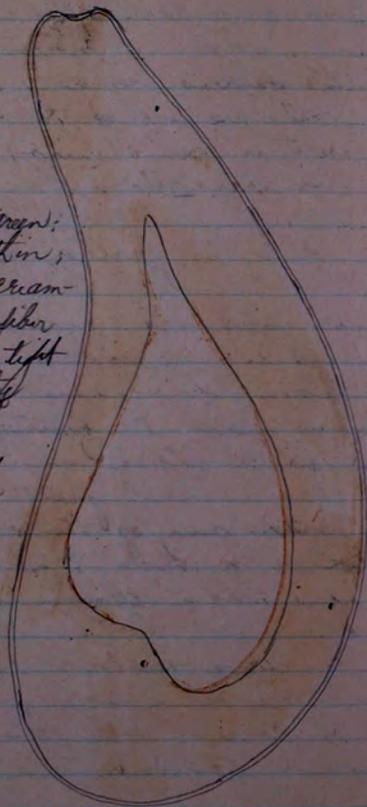 green:
thin;
cream-
fiber
tight